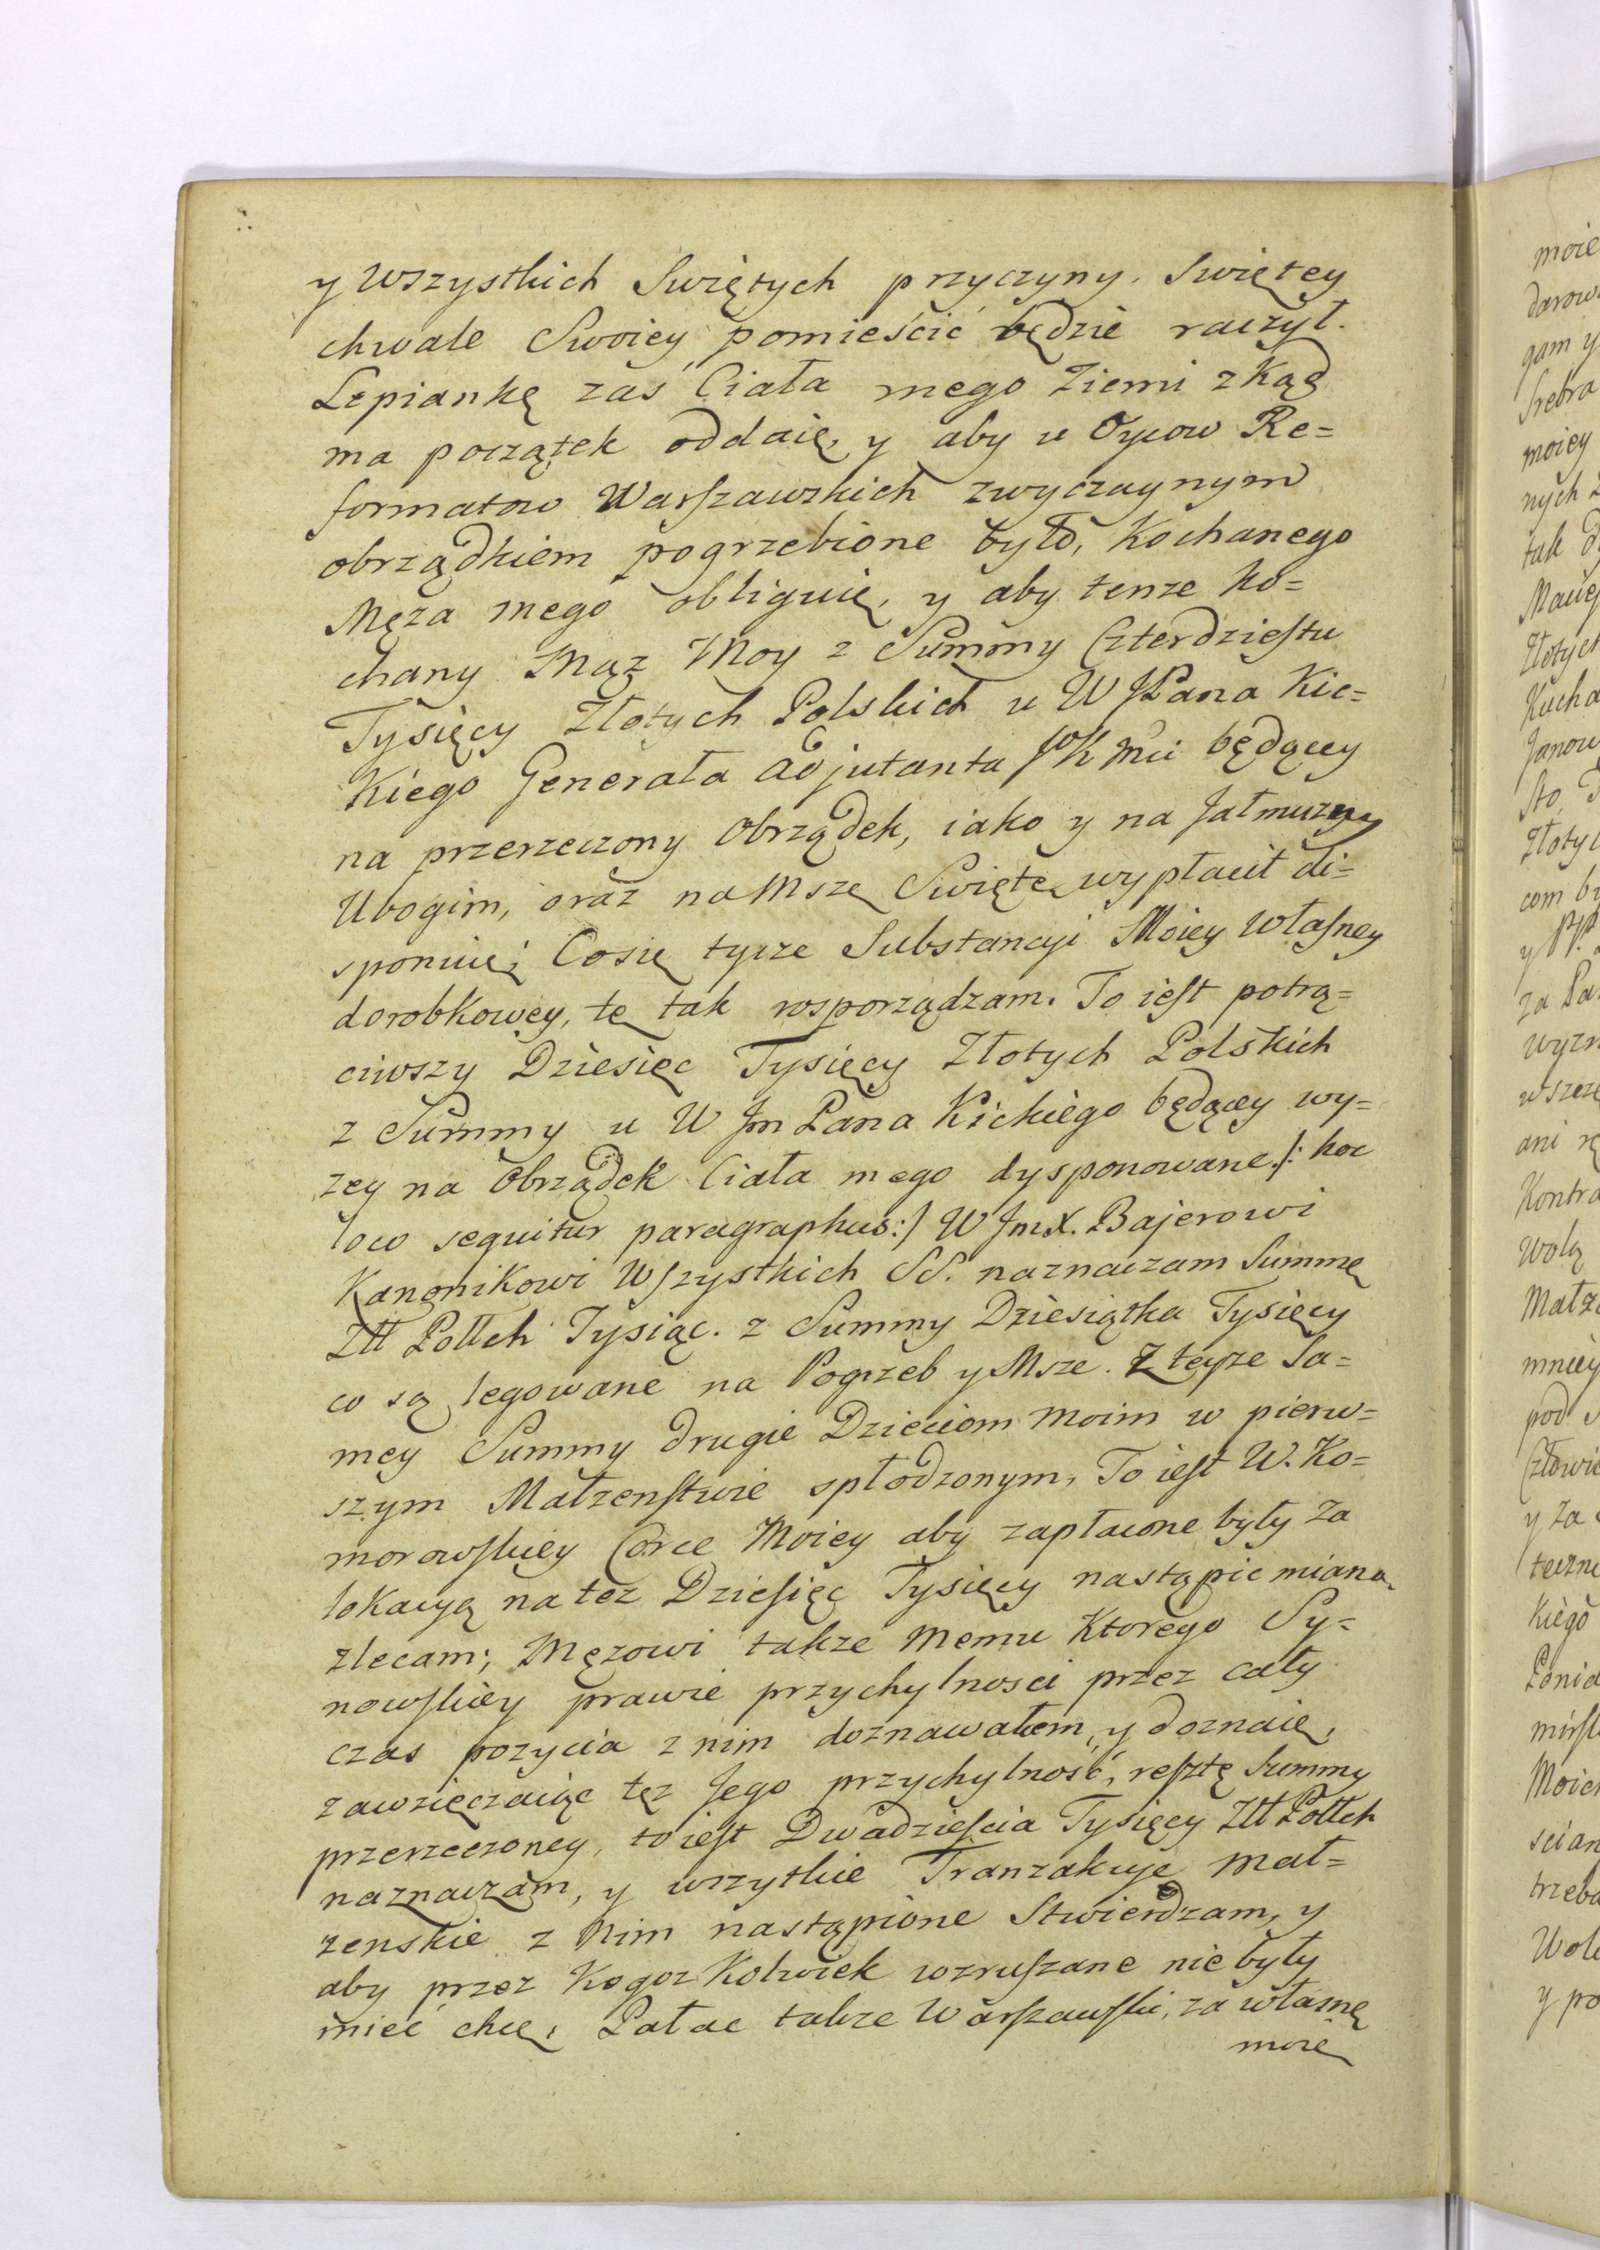 y Wszystkich Swiętych przyczyny, Swiętey
chwale Swoiey pomieścić będzie raczył.
Lepiankę zaś Ciała mego Ziemi zkąd
ma początek oddaię, y aby u Oycow Re=
formatow Warszawskich zwyczaynym
obrządkiem pogrzebione było, Kochanego
Męza mego obliguię, y aby tenze Ko=
chany Mąz Moy z Summy Czterdziestu
Tysięcy Złotych Polskich u W JPana Kic=
Kiego Generała Adjutanta JK Mci będącey
na przerzeczony Obrządek, iako y na Jałmuzny
Ubogim, oraz na Msze Swięte wypłacił di=
sponuię; Cosię tycze Substancyi Moiey Własney
dorobkowey, tę tak rosporządzam. To iest potrą=
ciwszy Dziesięc Tysięcy Złotych Polskich
z Summy u W Jm Pana Kickiego będącey wy=
zey na Obrządek Ciała mego dysponowane /: hoc
loco sequitur paragraphus :/ W JmX. Bajerowi
Kanonikowi Wszystkich SS. naznaczam Summę
Złł Polłch Tysiąc. z Summy Dziesiątka Tysięcy
co są legowane na Pogrzeb y Msze. Z teyze Sa=
mey Summy drugie Dzieciom moim w pierw=
szym Małzenstwie spłodzonym, To iest W. Ko=
morowskiey Corce Moiey aby zapłacone były za
lokacyą na tez Dziesięc Tysięcy nastąpic mianą
zlecam; Męzowi takze Memu Ktorego Sy=
nowskiey prawie przychylnosci przez cały
czas pozycia z nim doznawałem, y doznaię,
zawzięczaiąc tęz Jego przychylność, resztę Summy
przerzeczoney, to iest Dwadziescia Tysięcy Złł Polłch
naznaczam, y wszytkie Tranzakcye Mał=
zenskie z Nim nastąpione Stwierdzam, y
aby przez KogozKolwiek wzruszane nie były
mieć chcę, Pałac takze Warszawski, za własnę
moię

moie
gam y
Srebra
moiey
nych
tak
Złotych
Kucha
Janow
Sto
com
y
za
wszcze
ani
Kontra
Wolą
Małz
mniey
pod
Człowie
y Za
Kiego
Moich
trzeba
y po